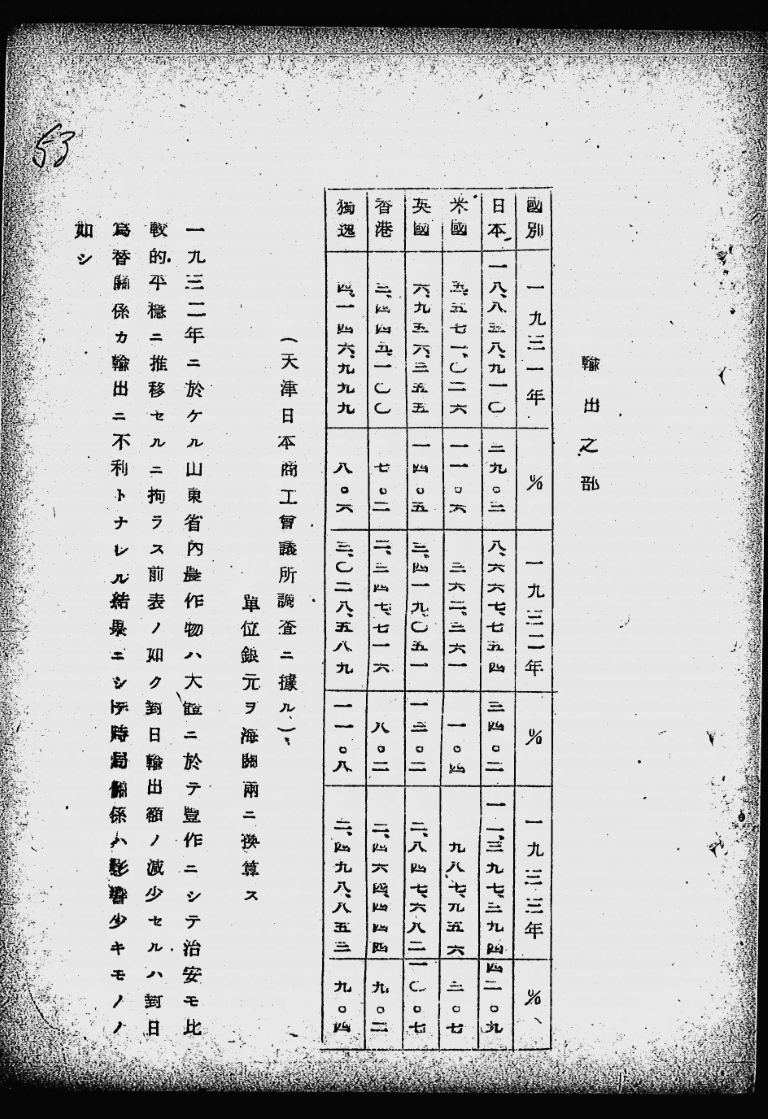 輸出之部
國別 一九三一年 % 一九三二年 % 一九三三年 %
日本 一八、八五八、九一〇 二九。二 八、六六七、七五四 三四。二 一一、三九七、三九四 四二。九
米國 五、五七一、〇二六 一一。六 三六二、三六一 一。四 九八七、九五六 三。七
英國 六、九五六、三五五 一四。五 三、四一九、〇五一 一三。二 二、八四七、六八二 一〇。七
香港 三、四四五、一〇〇 七。二 二、三四七、七一六 八。二 二、四六四、四四四 九。二
獨逸 四、一四六、九九九 八。六 三、〇二八、五八九 一一。八 二、四九八、八五三 九。四
(天津日本商工會議所調査ニ據ル、)
單位銀元ヲ海關兩ニ換算ス
一九三二年ニ於ケル山東省內農作物ハ大體ニ於テ豐作ニシテ治安モ比
較的平穩ニ推移セルニ拘ラス前表ノ如ク對日輸出額ノ減少セルハ對日
爲替關係カ輸出ニ不利トナレル結果ニシテ時局關係ハ影響少キモノノ
如シ
53